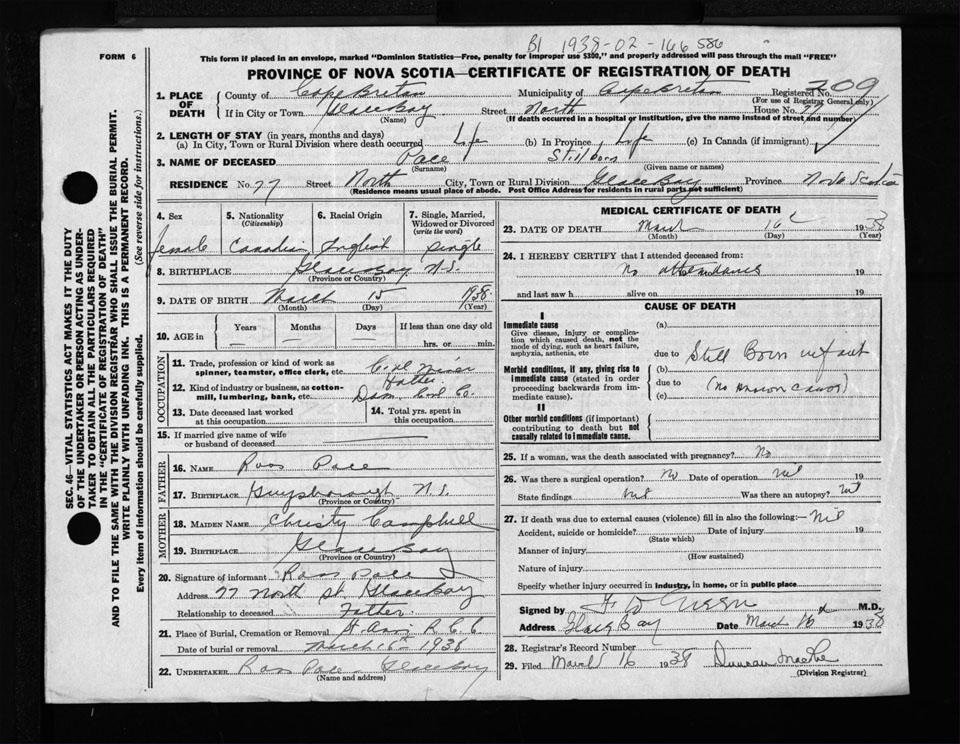 B1 1938-02-166586
FORM 6
This form if placed in an envelope, marked "Dominion Statistics—Free, penalty for improper use $300," and properly addressed will pass through the mail "FREE"
PROVINCE OF NOVA SCOTIA—CERTIFICATE OF REGISTRATION OF DEATH
SEC. 46—VITAL STATISTICS ACT MAKES IT THE DUTY
OF THE UNDERTAKER OR PERSON ACTING AS UNDER-
TAKER TO OBTAIN ALL THE PARTICULARS REQUIRED
IN THE "CERTIFICATE OF REGISTRATION OF DEATH"
AND TO FILE THE SAME WITH THE DIVISION REGISTRAR WHO SHALL ISSUE THE BURIAL PERMIT.
WRITE PLAINLY WITH UNFADING INK. THIS IS A PERMANENT RECORD.
Every item of information should be carefully supplied. (See reverse side for instructions.)
1. PLACE OF DEATH County of Cape Breton Municipality of Cape Breton Registered No. 209
(For use of Registrar General only)
If in City or Town Glace Bay Street North House No. 77
(Name) (If death occurred in a hospital or institution, give the name instead of street and number)
2. LENGTH OF STAY (in years, months and days)
(a) In City, Town or Rural Division where death occurred Life (b) In Province Life (c) In Canada (if immigrant)
3. NAME OF DECEASED Pace Stillborn
(Surname) (Given name or names)
RESIDENCE No 77 Street North City, Town or Rural Division Glace Bay Province Nova Scotia
(Residence means usual place of abode. Post Office Address for residents in rural parts not sufficient)
4. Sex 5. Nationality (Citizenship) 6. Racial Origin 7. Single, Married, Widowed or Divorced (write the word)
female Canadian English single
8. BIRTHPLACE Glace Bay N.S.
(Province or Country)
9. DATE OF BIRTH March 15 1938
(Month) (Day) (Year)
10. AGE in Years Months Days If less than one day old
— — — hrs. or min.
OCCUPATION
11. Trade, profession or kind of work as spinner, teamster, office clerk, etc. Coal Miner
Father
12. Kind of industry or business, as cotton-mill, lumbering, bank, etc. Dom. Coal Co.
13. Date deceased last worked at this occupation
14. Total yrs. spent in this occupation
15. If married give name of wife or husband of deceased
FATHER
16. NAME Ross Pace
17. BIRTHPLACE Guysborough N.S.
(Province or Country)
MOTHER
18. MAIDEN NAME Christy Campbell
19. BIRTHPLACE Glace Bay
(Province or Country)
20. Signature of informant Ross Pace
Address 77 North St. Glace Bay
Relationship to deceased Father
21. Place of Burial, Cremation or Removal St Ann R.C.C.
Date of burial or removal March 16 1938
22. UNDERTAKER Ross Pace Glace Bay
(Name and address)
MEDICAL CERTIFICATE OF DEATH
23. DATE OF DEATH March 16 1938
(Month) (Day) (Year)
24. I HEREBY CERTIFY that I attended deceased from
No attendance 19
and last saw h alive on 19
CAUSE OF DEATH
I
Immediate cause
Give disease, injury or complication which caused death, not the mode of dying, such as heart failure, asphyxia, asthenia, etc
(a)
due to Still Born infant
Morbid conditions, if any, giving rise to immediate cause (stated in order proceeding backwards from immediate cause).
(b)
due to (No known cause)
(c)
II
Other morbid conditions (if important) contributing to death but not causally related to immediate cause.
25. If a woman, was the death associated with pregnancy? No
26. Was there a surgical operation? No Date of operation nil
State findings nil Was there an autopsy? nil
27. If death was due to external causes (violence) fill in also the following:— Nil
Accident, suicide or homicide? Date of injury 19
(State which)
Manner of injury
(How sustained)
Nature of injury
Specify whether injury occurred in industry, in home, or in public place
Signed by F. W. Green M.D.
Address Glace Bay Date March 16 1938
28. Registrar's Record Number
29. Filed March 16 1938 Duncan
(Division Registrar)